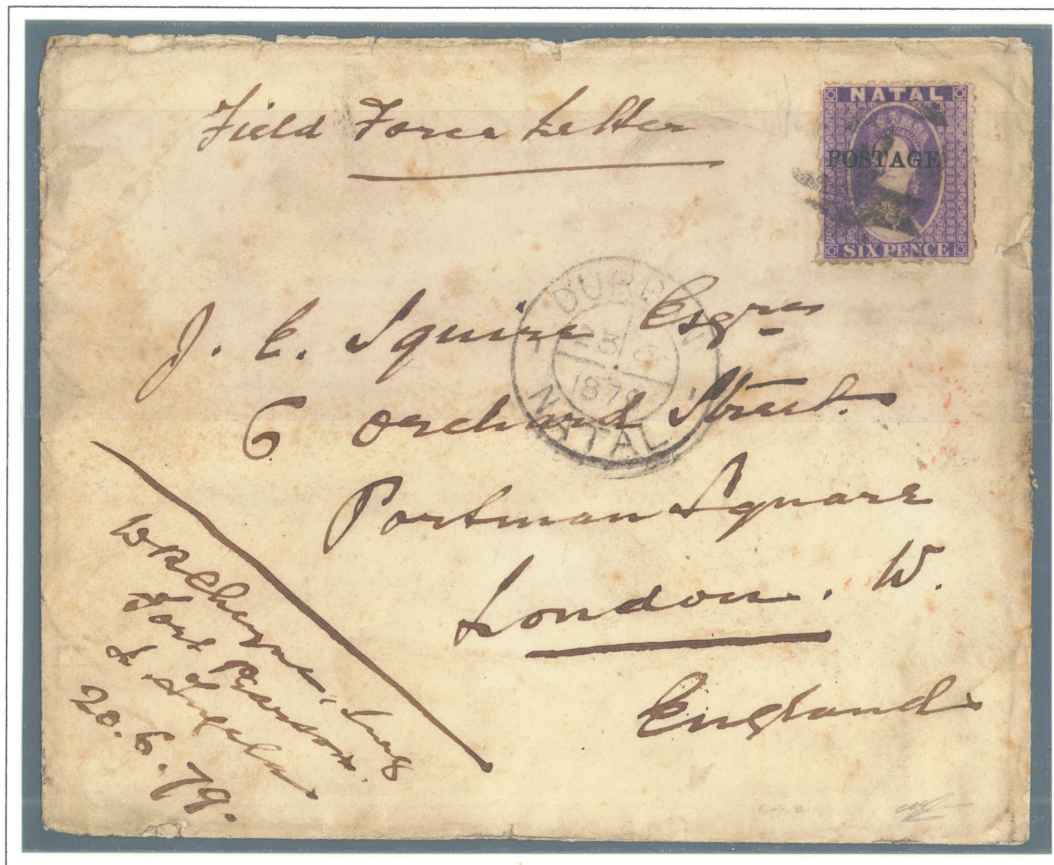 Field Force Letter
NATAL
POSTAGE
SIX PENCE
DURBAN
23 6
1879
NATAL
J. E. Squire Esqre
6 Orchard Street
Portman Square
London. W.
England
Fort Pearson.
20.6.79.